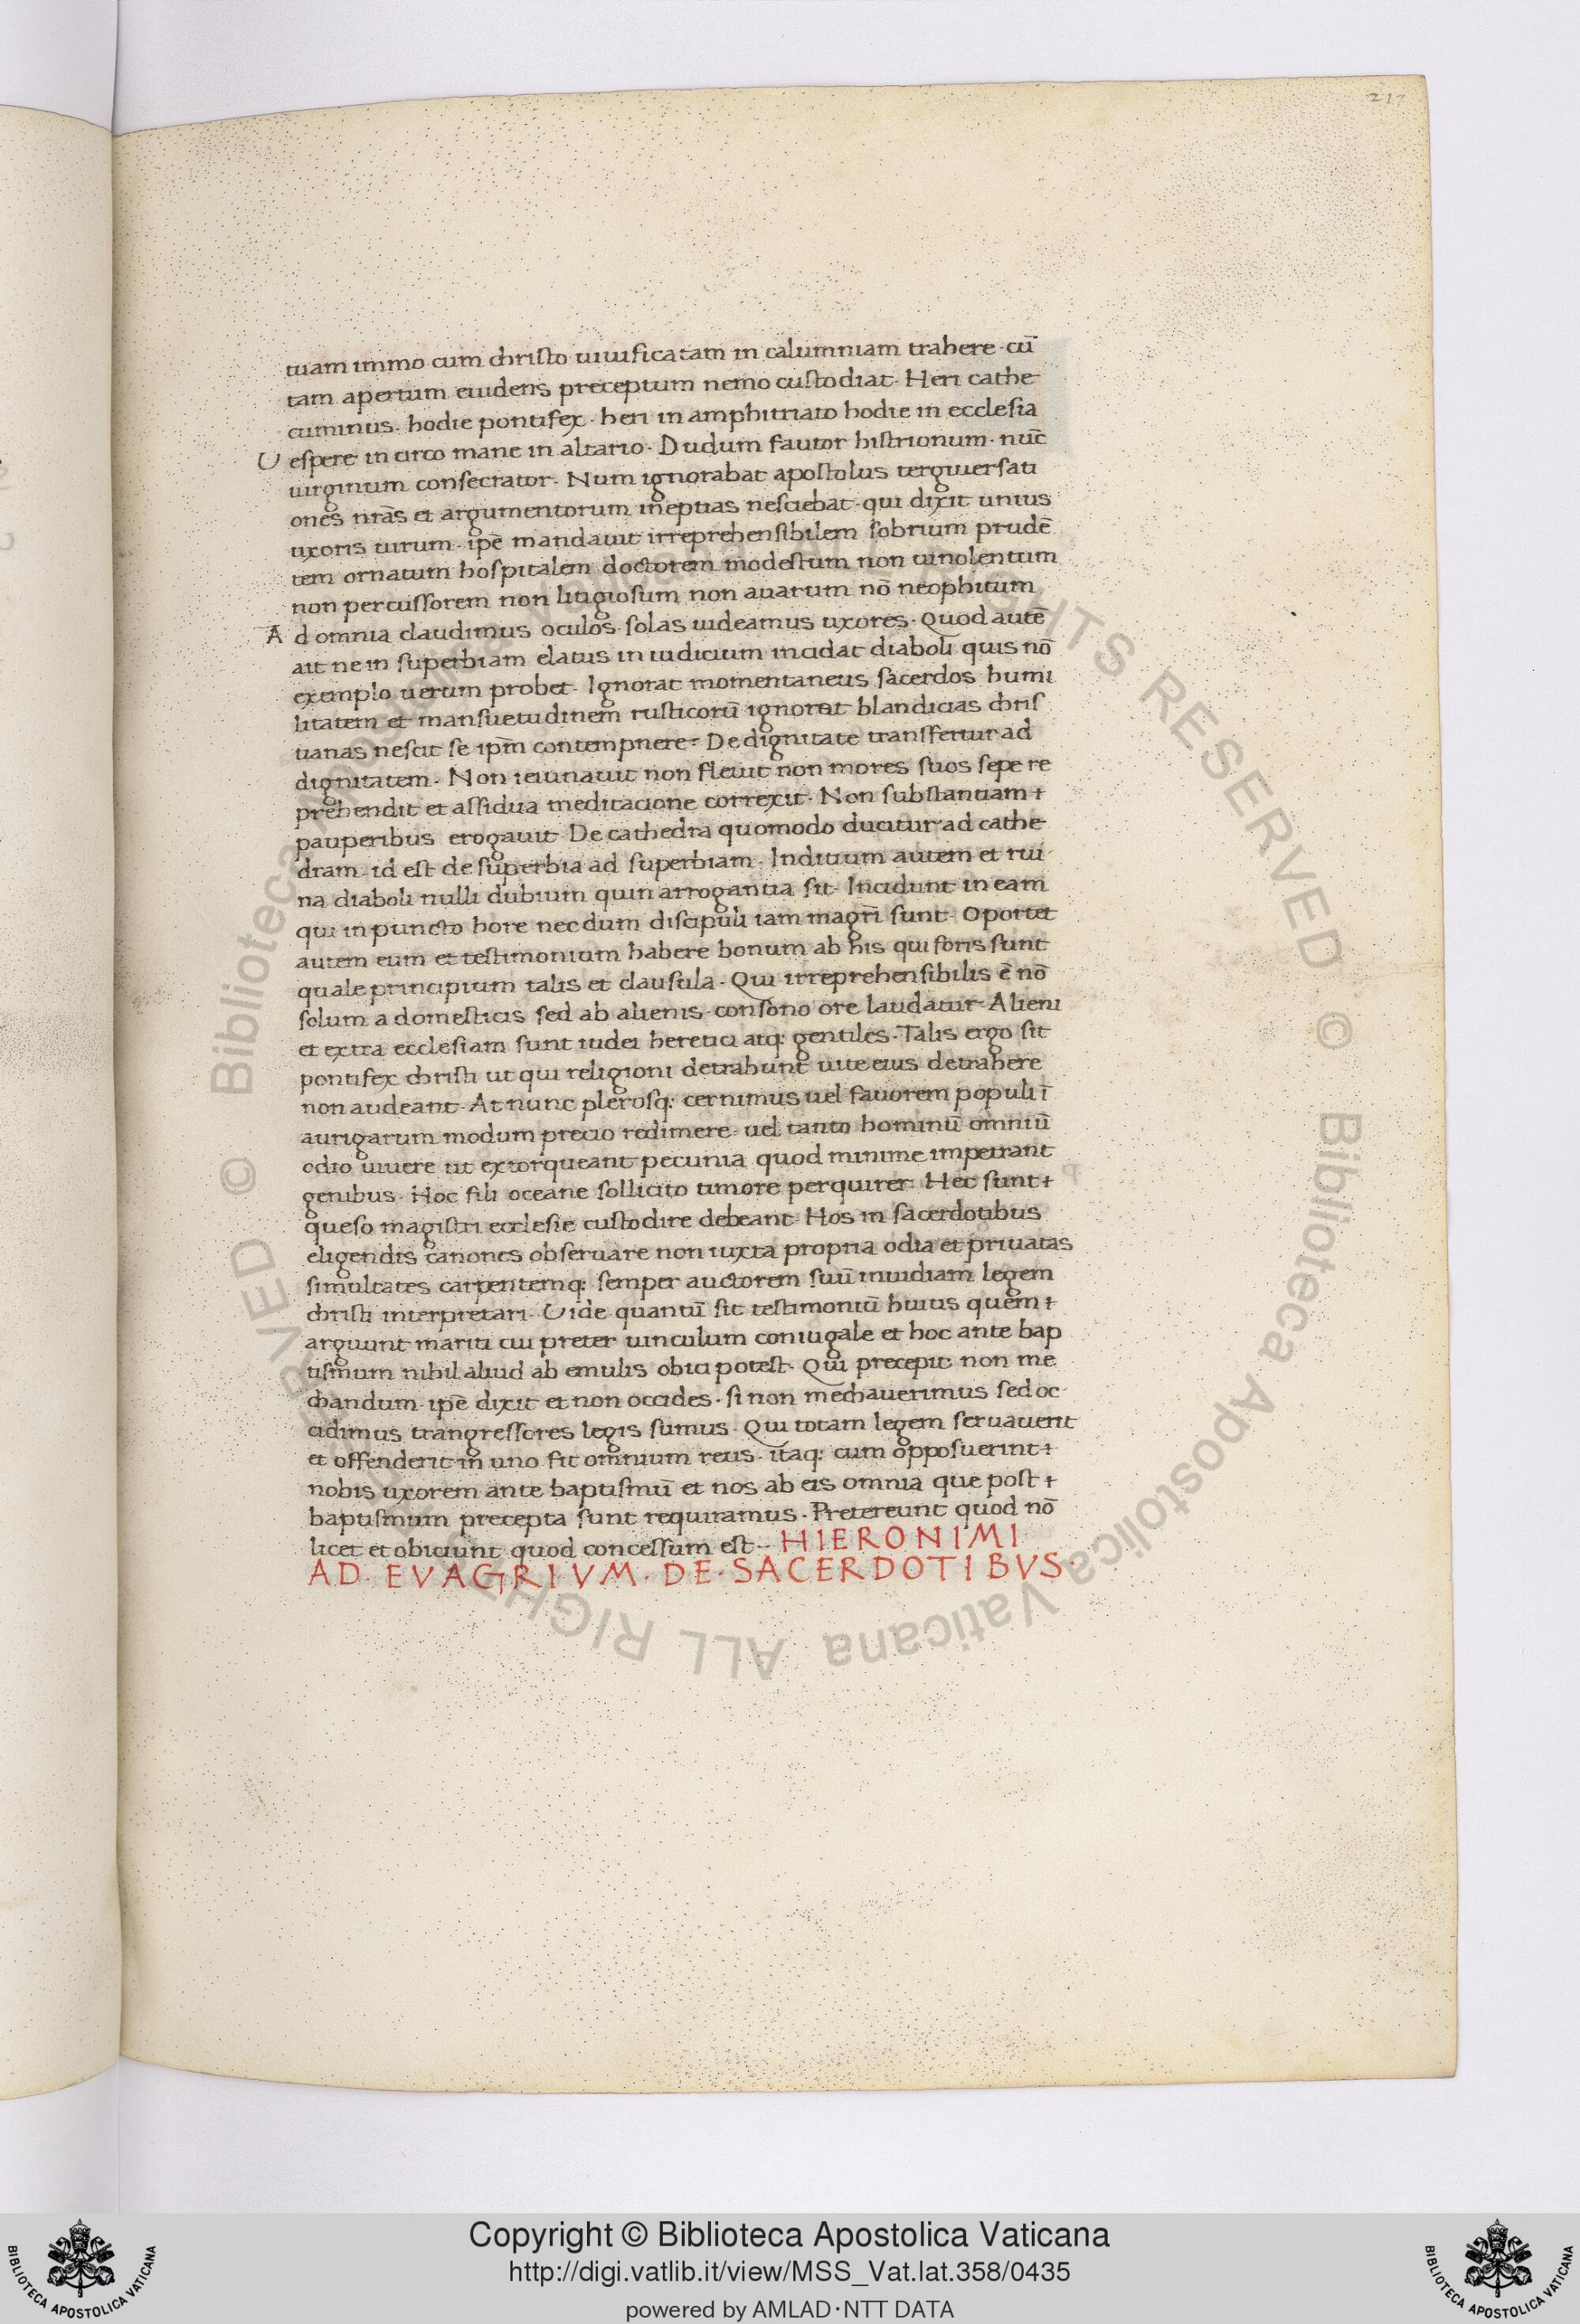 217
tuam immo cum christo uiuificatam in calumniam trahere · cū
tam apertum euidens preceptum nemo custodiat · Heri cathe
cuminus · hodie pontifex · heri in amphitriato hodie in ecclesia
Uespere in circo mane in altario · Dudum fautor histrionum · nūc
uirginum consecrator · Num ignorabat apostolus tergiuersati
ones nr̄as et argumentorum ineptias nesciebat · qui dixit unius
uxoris uirum · ip̄e mandauit irreprehensibilem sobrium prudē
tem ornatum hospitalem doctorem modestum non uinolentum
non percussorem non litigiosum non auarum nō neophitum
Ad omnia claudimus oculos solas uideamus uxores · Quod autē
ait ne in superbiam elatus in iudicium incidat diaboli quis nō
exemplo uerum probet · Ignorat momentaneus sacerdos humi
litatem et mansuetudinem rusticorū ignorat blandicias chris
tianas nescit se ip̄m contempnere · De dignitate transfertur ad
dignitatem · Non ieiunauit non fleuit non mores suos sepe re
prehendit et assidua meditacione correxit · Non substantiam +
pauperibus erogauit · De cathedra quomodo ducitur ad cathe
dram · id est de superbia ad superbiam · Inditium autem et rui
na diaboli nulli dubium quin arrogantia sit · Incidunt in eam
qui in puncto hore nec dum discipuli iam magr̄i sunt · Oportet
autem eum et testimonium habere bonum ab his qui foris sunt
quale principium talis et clausula · Qui irreprehensibilis ē nō
solum a domesticis sed ab alienis · consono ore laudatur · Alieni
et extra ecclesiam sunt iudei heretici atq: gentiles · Talis ergo sit
pontifex christi ut qui religioni detrahunt uite eius detrahere
non audeant · At nunc plerosq: cernimus uel fauorem populi ī
aurigarum modum precio redimere · uel tanto hominū omniū
odio uiuere ut extorqueant pecunia quod minime impetrant
genibus · Hoc fili oceane sollicito timore perquirer · Hec sunt +
queso magistri ecclesie custodire debeant · Hos in sacerdotibus
eligendis canones obseruare non iuxta propria odia et priuatas
simultates carpentemq: semper auctorem suū inuidiam legem
christi interpretari · Uide quantū sit testimoniū huius quem +
arguunt mariti cui preter uinculum coniugale et hoc ante bap
tismum nihil aliud ab emulis obici potest · Qui precepit non me
chandum · ip̄e dixit et non occides · si non mechauerimus sed oc
cidimus trangressores legis sumus · Qui totam legem seruauerit
et offenderit in uno fit omnium reus · itaq: cum opposuerint +
nobis uxorem ante baptismū et nos ab eis omnia que post +
baptismum precepta sunt requiramus · Pretereunt quod nō
licet et obiciunt quod concessum est · HIERONIMI
AD · EVAGRIVM · DE · SACERDOTIBVS ·
© Biblioteca Apostolica Vaticana ALL RIGHTS RESERVED
© Biblioteca Apostolica Vaticana ALL RIGHTS RESERVED
BIBLIOTECA APOSTOLICA VATICANA
Copyright © Biblioteca Apostolica Vaticana
http://digi.vatlib.it/view/MSS_Vat.lat.358/0435
powered by AMLAD·NTT DATA
BIBLIOTECA APOSTOLICA VATICANA